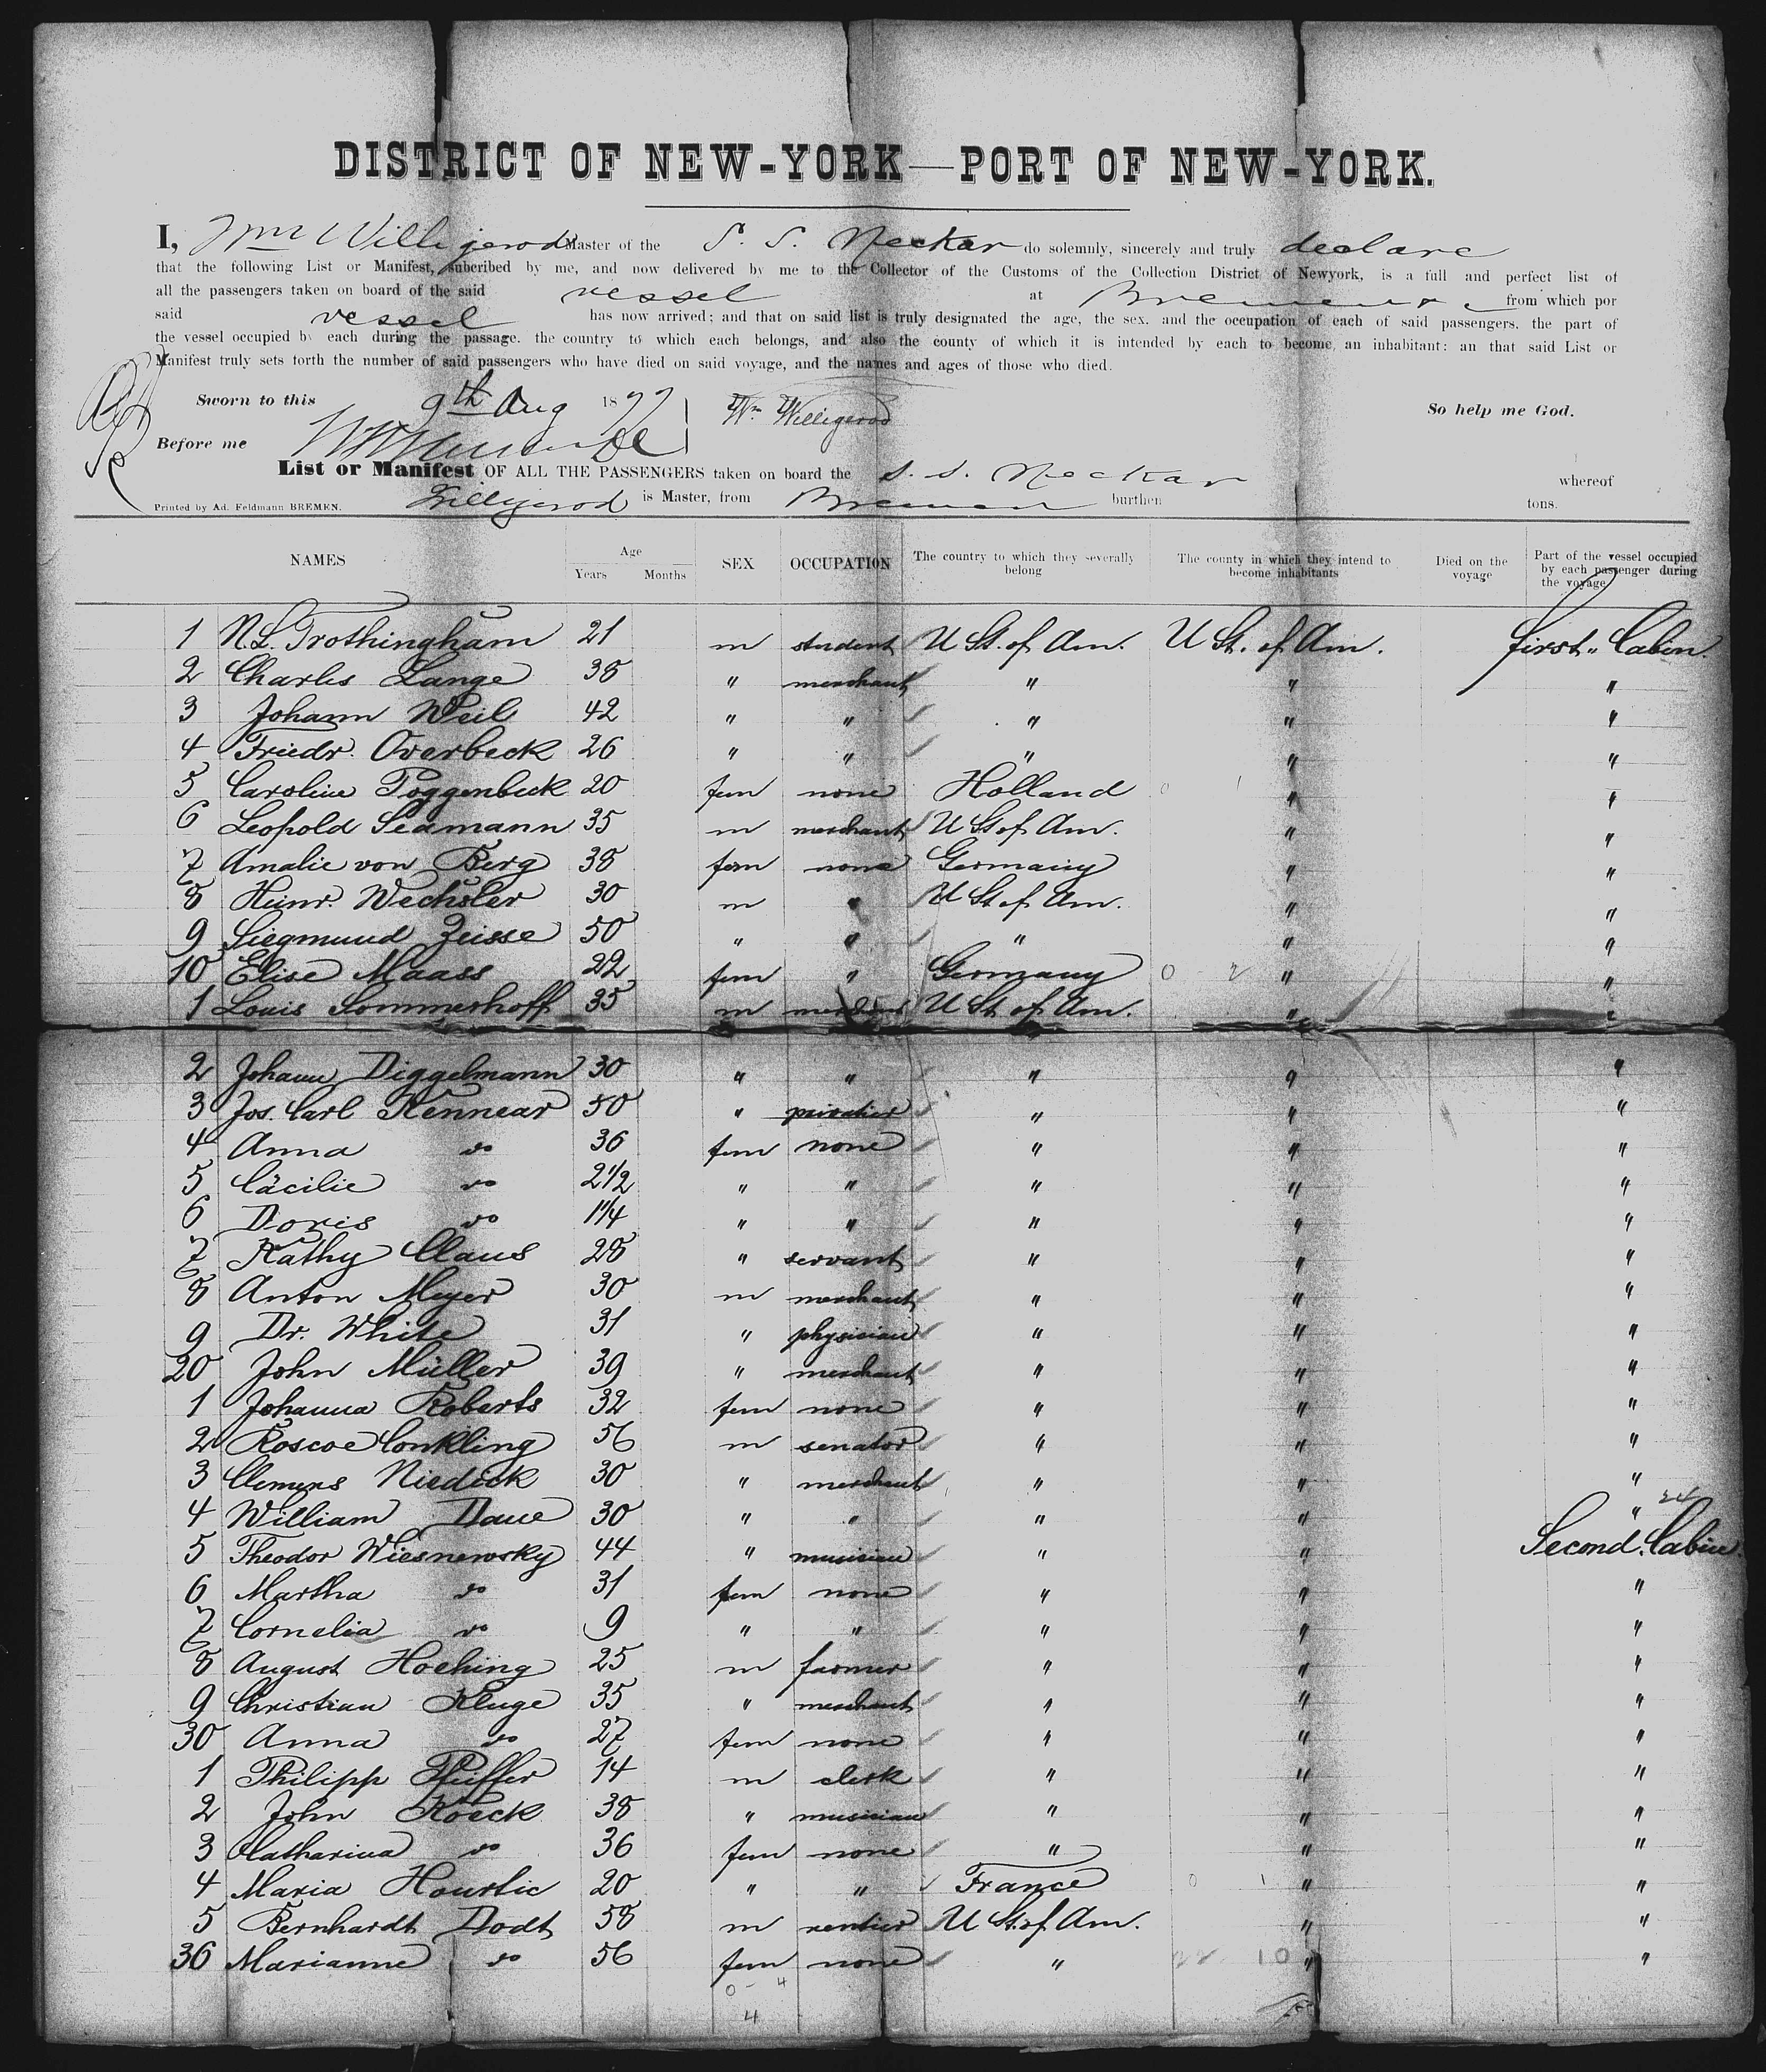 DISTRICT OF NEW-YORK—PORT OF NEW-YORK.
I, Wm Willigerod Master of the S. S. Neckar do solemnly, sincerely and truly declare
that the following List or Manifest, subcribed by me, and now delivered by me to the Collector of the Customs of the Collection District of Newyork, is a full and perfect list of
all the passengers taken on board of the said vessel at Bremen from which por
said vessel has now arrived; and that on said list is truly designated the age, the sex. and the occupation of each of said passengers. the part of
the vessel occupied by each during the passage. the country to which each belongs, and also the county of which it is intended by each to become an inhabitant: an that said List or
Manifest truly sets forth the number of said passengers who have died on said voyage, and the names and ages of those who died.
Sworn to this 9th Aug 1877 Wm Willigerod So help me God.
Before me
List or Manifest OF ALL THE PASSENGERS taken on board the S. S. Neckar whereof
Willigerod is Master, from Bremen burthen tons.
Printed by Ad. Feldmann BREMEN.
NAMES Age Years Months SEX OCCUPATION The country to which they severally belong The county in which they intend to become inhabitants Died on the voyage Part of the vessel occupied by each passenger during the voyage
1 N.L. Frothingham 21 m student U St. of Am. U St. of Am. first Cabin.
2 Charles Lange 38 " merchant " " "
3 Johann Weil 42 " " " " "
4 Friedr. Overbeck 26 " " " " "
5 Caroline Poggenbeck 20 fem none Holland " "
6 Leopold Seamann 35 m merchant U St of Am. " "
7 Amalie von Berg 38 fem none Germany " "
8 Heinr. Wechsler 30 m " U St of Am. " "
9 Siegmund Zeisse 50 " " " " "
10 Elise Maass 22 fem " Germany " "
1 Louis Sommerhoff 35 m merchant U St of Am. " "
2 Johann Diggelmann 30 " " " " "
3 Jos. Carl Kennear 50 " privatier " " "
4 Anna do 36 fem none " " "
5 Cäcilie do 2 1/2 " " " " "
6 Doris do 1 1/4 " " " " "
7 Kathy Claus 28 " servant " " "
8 Anton Meyer 30 m merchant " " "
9 Dr. White 31 " physician " " "
20 John Müller 39 " merchant " " "
1 Johanna Roberts 32 fem none " " "
2 Roscoe Conkling 56 m senator " " "
3 Clemens Niedick 30 " merchant " " "
4 William Daue 30 " " " " " 24
5 Theodor Wiesnewsky 44 " musician " " Second Cabin
6 Martha do 31 fem none " " "
7 Cornelia do 9 " " " " "
8 August Hoehing 25 m farmer " " "
9 Christian Kluge 35 " merchant " " "
30 Anna do 27 fem none " " "
1 Philipp Pfeiffer 14 m clerk " " "
2 John Koeck 38 " musician " " "
3 Catharina do 36 fem none " " "
4 Maria Hourtic 20 " " France " "
5 Bernhardt Dodt 58 m rentier U St. of Am. " "
36 Marianne do 56 fem none " " "
0 - 4
4